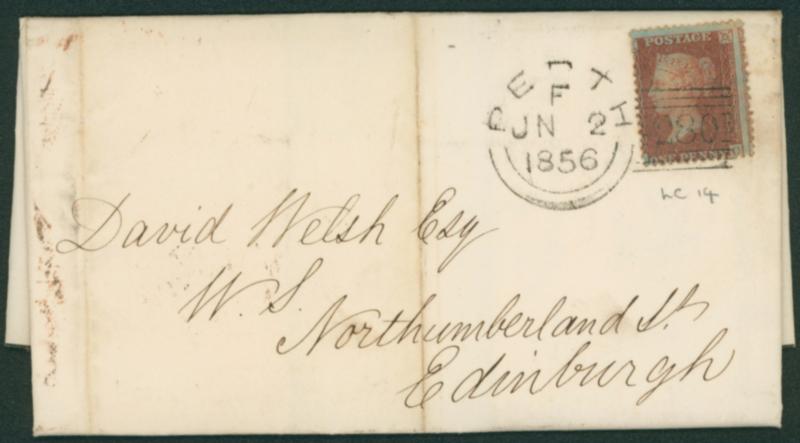 POSTAGE
PERTH
F
JN 2
1856
280
ONE PENNY
LC 14
David Welsh Esq
W. S.
Northumberland St.
Edinburgh